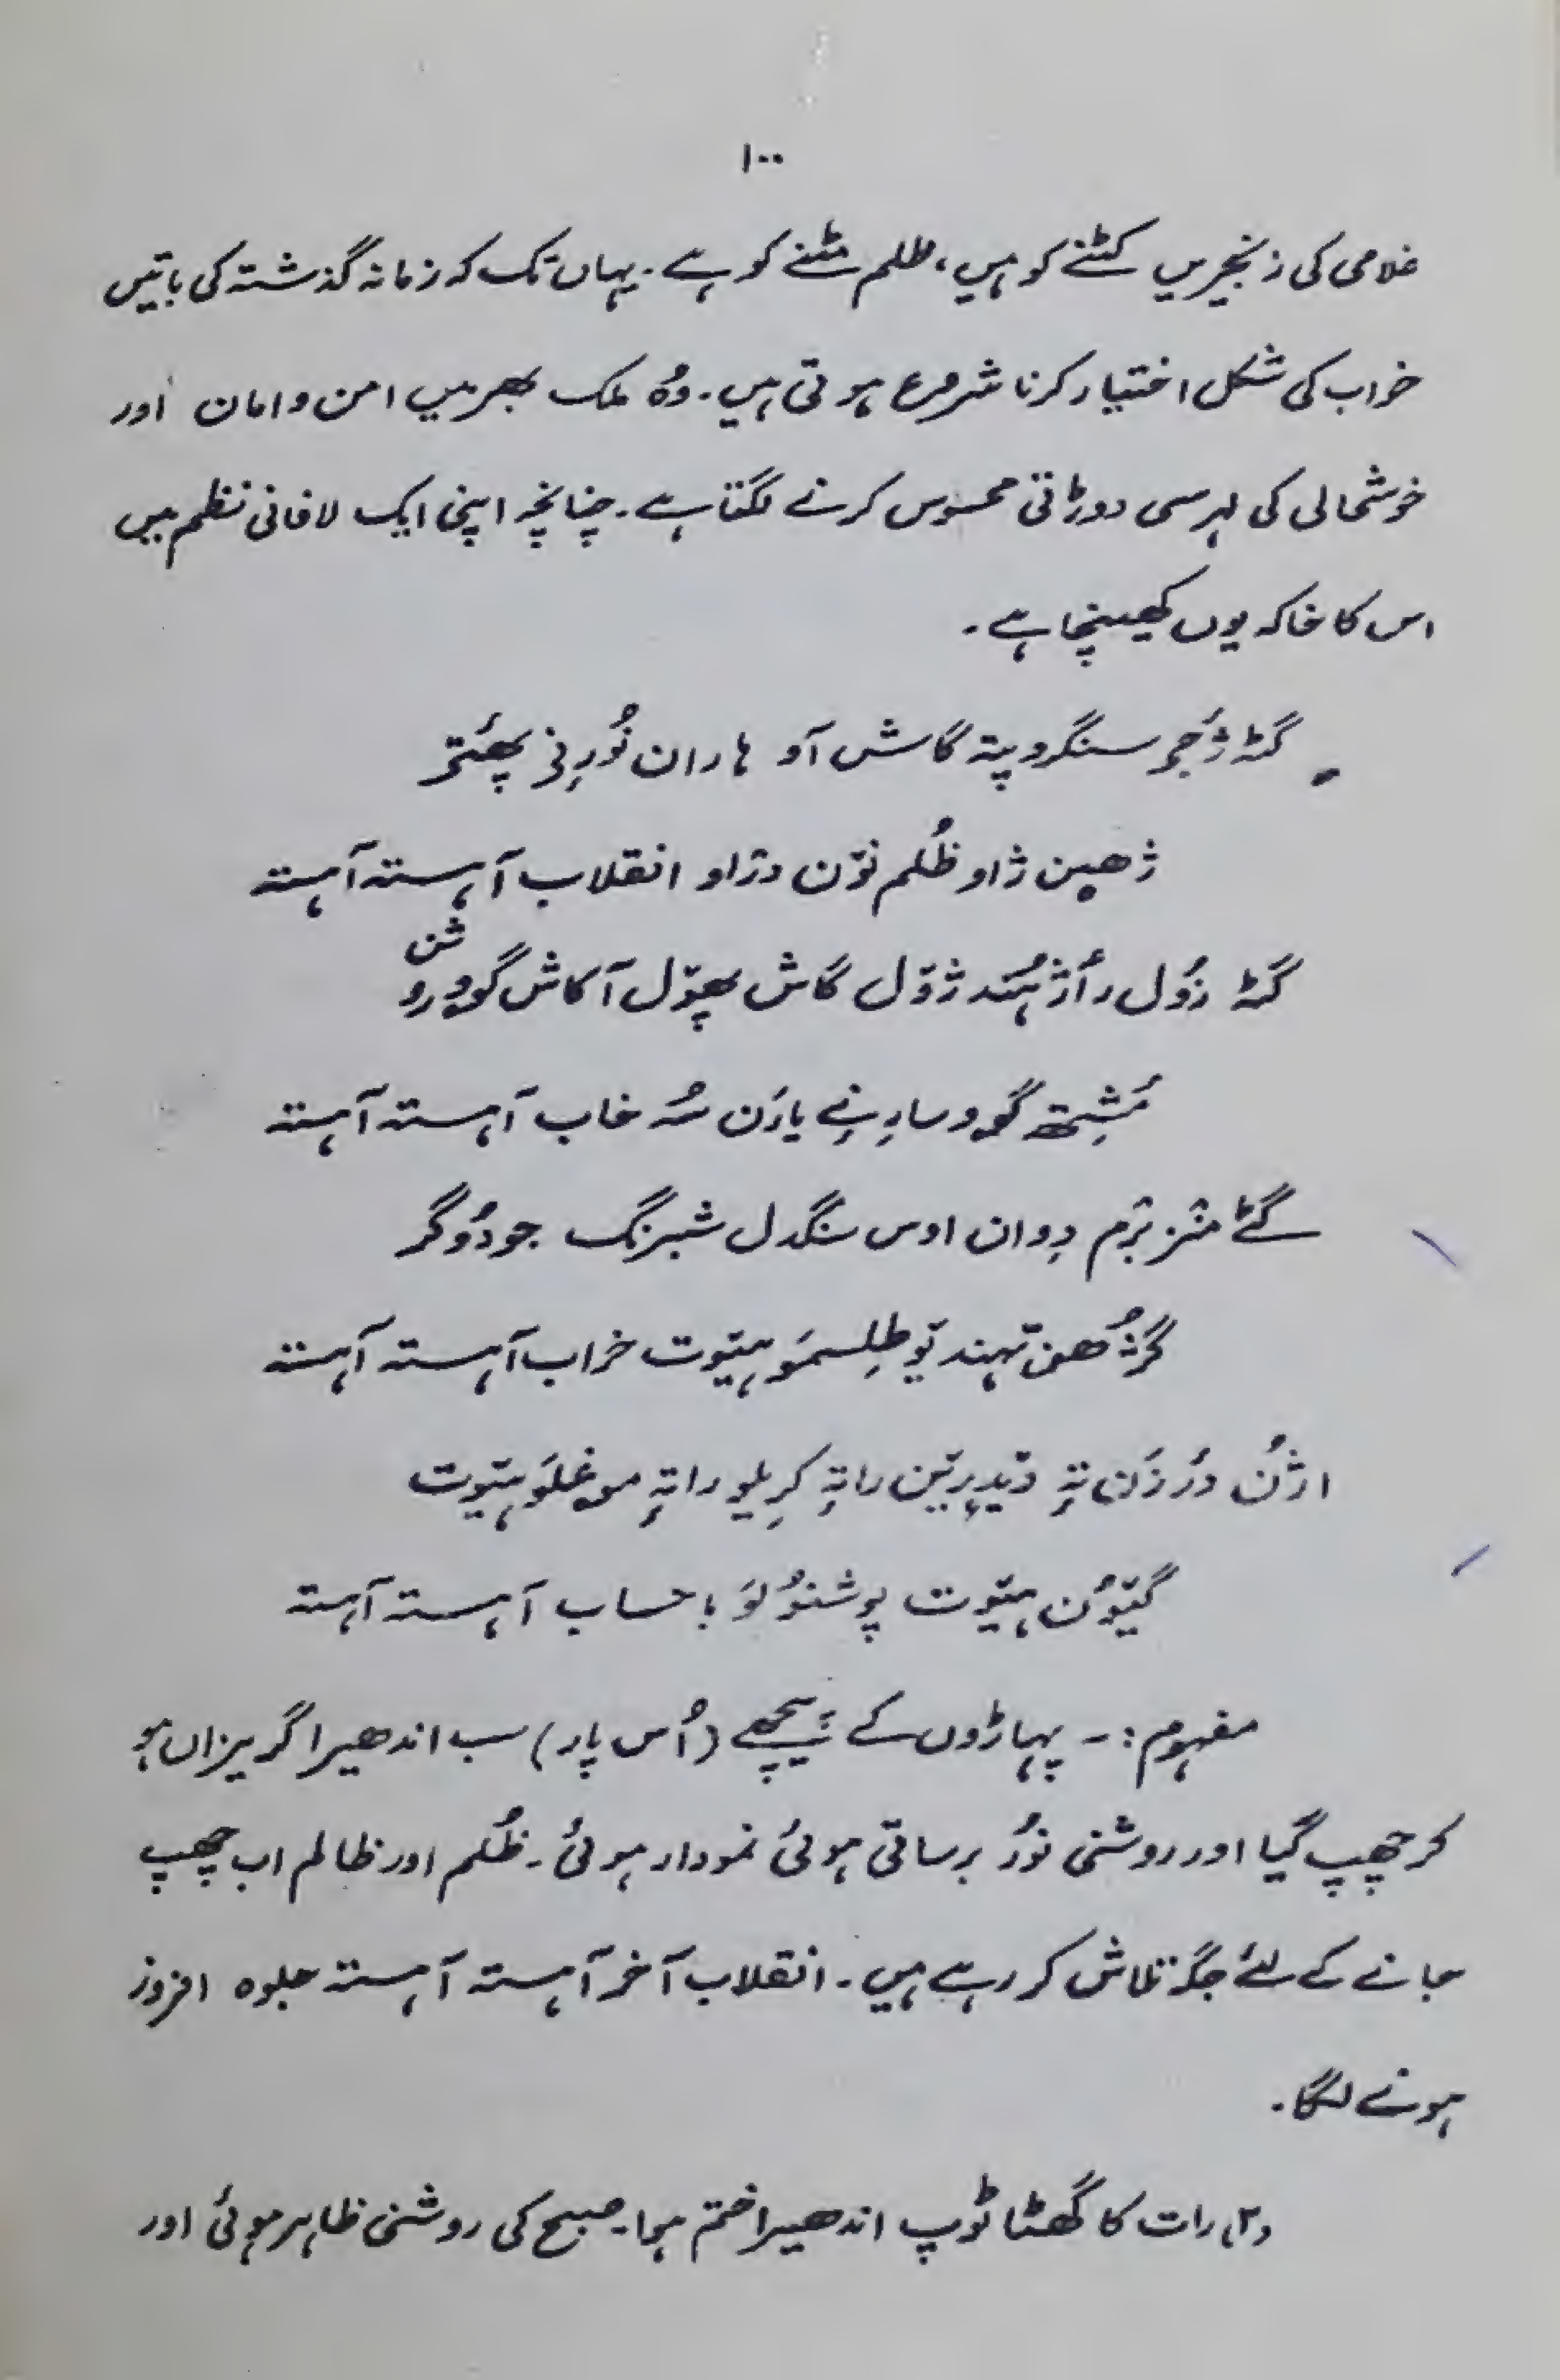 ۱۰۰
غلامی کی زنجیریں کٹنے کو ہیں، ظلم مٹنے کو ہے۔ یہاں تک کہ زمانہ گذشتہ کی باتیں
خواب کی شکل اختیار کرنا شروع ہوتی ہیں۔ وُہ ملک بھر میں امن و امان اور
خوشحالی کی لہر سی دوڑاتی محسوس کرنے لگتا ہے۔ چنانچہ اپنی ایک لافانی نظم میں
اس کا خاکہ یوں کھینچا ہے۔
گٹہ ژٔج سنگرو پتہ گاش آو ہاران نُورِنی
ژھین ژاو ظُلم نوٚن دراو انقلاب آہستہ آہستہ
گٹہ زوٗل رٲژ ہُند ژوٚل گاش پھوٚل آکاش گوو روشن
مُشِتھ گوو سارِنے یارَن سُہ خاب آہستہ آہستہ
گٹے منز برٛم دِوان اوس سنگدل شبرنگ جودوٗگر
گژُھن تہند یو طِلسمَو ہیوٚت خراب آہستہ آہستہ
اژُن درزن تہٕ راتہٕ کرِیلو راتہٕ موغلَو ہیوٚت
گیوٗن ہیوٚت پوشنوٗلَو باحساب آہستہ آہستہ
مفہوم:۔ پہاڑوں کے پیچھے (اُس پار) سب اندھیرا گریزاں ہو
کر چھپ گیا اور روشنی نوُر برساتی ہوئی نمودار ہوئی۔ ظُلم اور ظالم اب چھپ
جانے کے لئے جگہ تلاش کر رہے ہیں۔ انقلاب آخر آہستہ آہستہ جلوہ افروز
ہونے لگا۔
(۲) رات کا گھٹا ٹوپ اندھیرا ختم ہوا۔ صبح کی روشنی ظاہر ہوئی اور